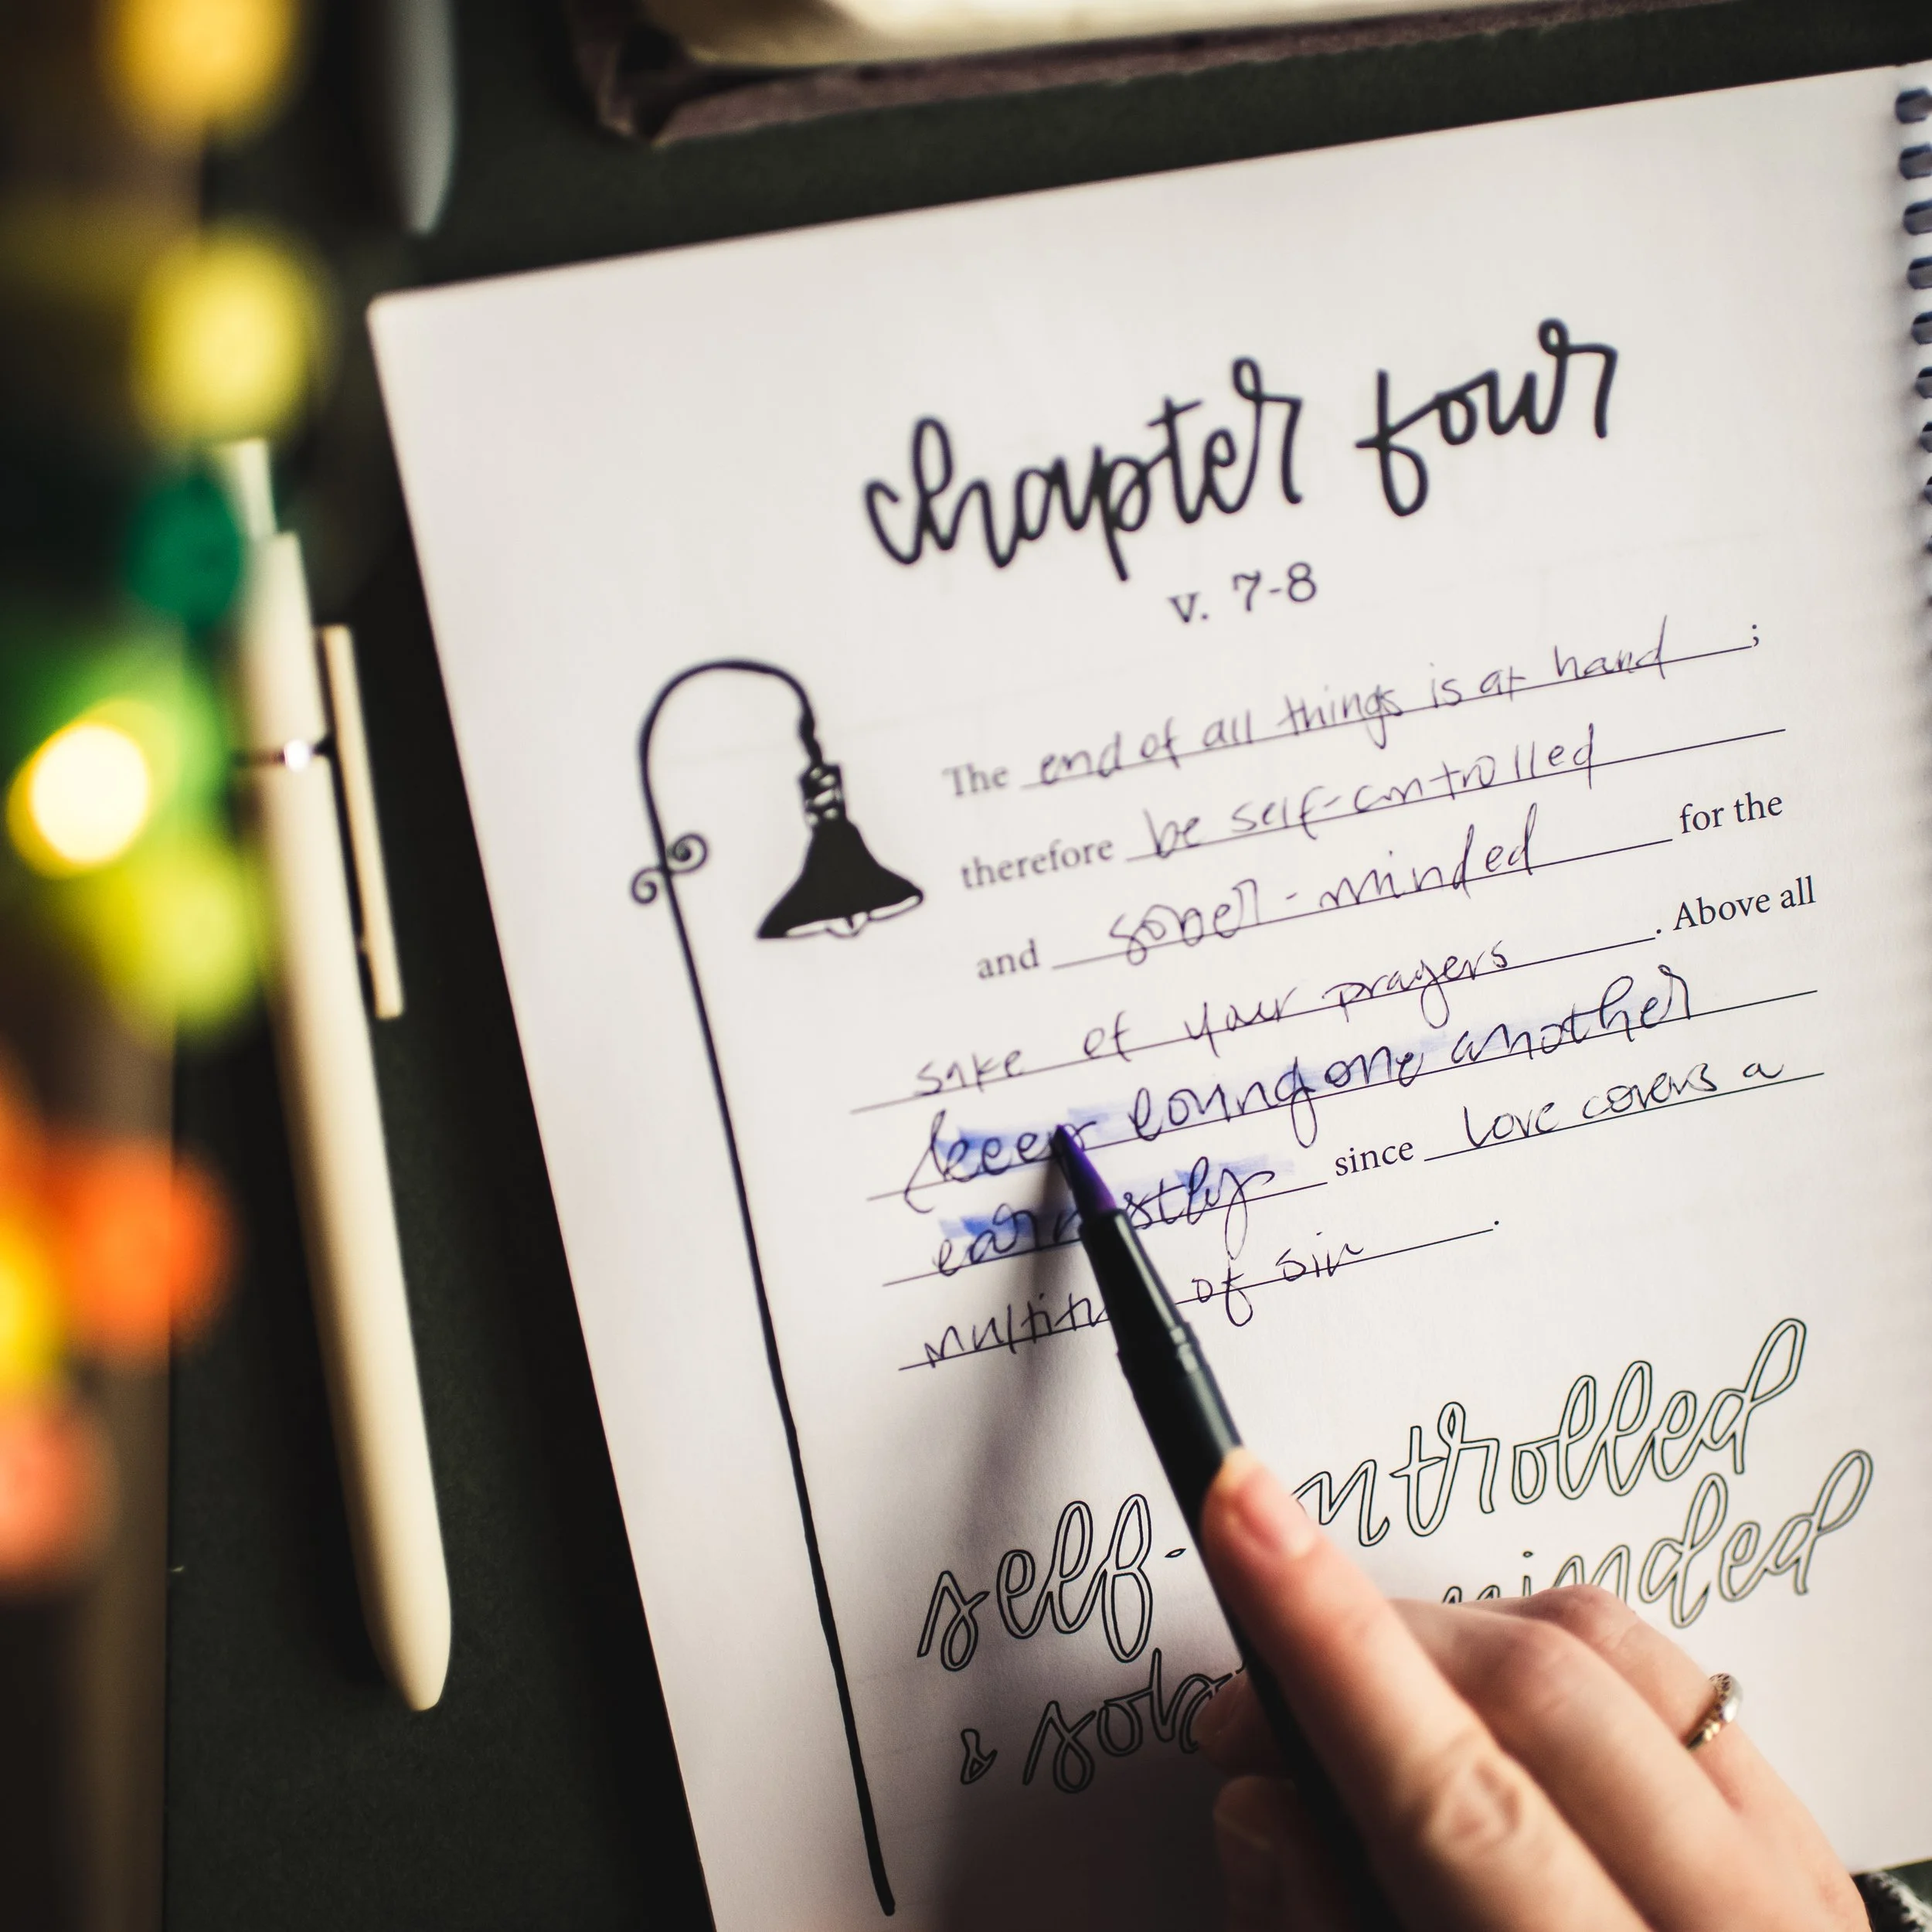 chapter four
v. 7-8
The end of all things is at hand ;
therefore be self-controlled
and sober-minded for the
sake of your prayers . Above all
keep loving one another
earnestly since love covers a
of sin .
self-